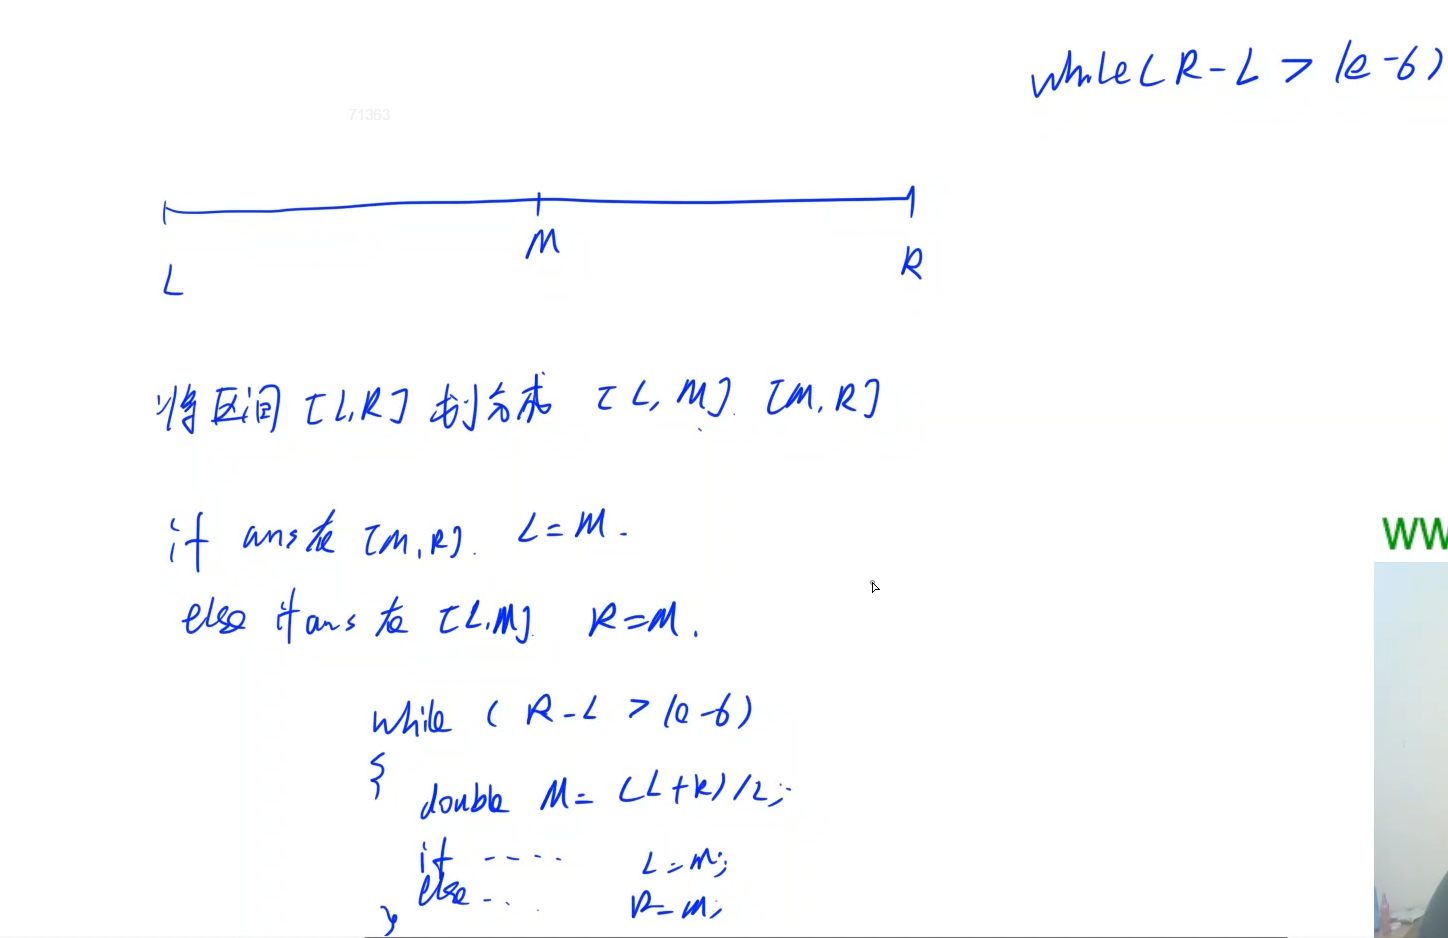 while(R-L > 1e-6)
71363
M
L
R
将区间 [L,R] 划分成 [L,M]. [M,R]
if ans在 [M,R]. L=M.
else if ans 在 [L,M]. R=M.
while ( R-L > 1e-6)
{
double M= (L+R)/2;
if ---- L=M;
else -.. R=M;
}
WW